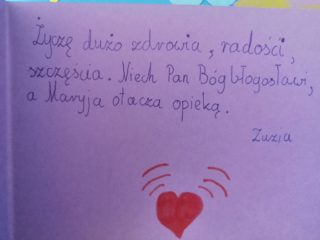 Życzę dużo zdrowia, radości,
szczęścia. Niech Pan Bóg błogosławi,
a Maryja otacza opieką.
Zuzia